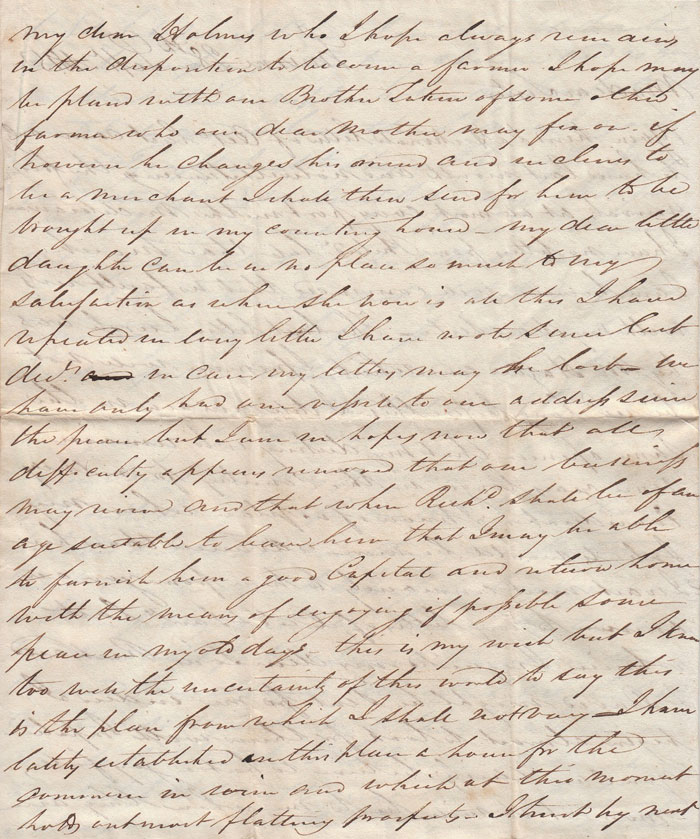 my dear Holmes who I hope always remains
in the disposition to become a farmer I hope may
be placed with our Brother or some other
farmer who our dear Mother may fix on - if
however he changes his mind and inclines to
be a merchant I shall then send for him to be
brought up in my counting house - my dear little
daughter can be in no place so much to my
satisfaction as where she now is all this I have
repeated in every letter I have wrote since last
Decr. in case my letters may be lost - we
have only had one vessel to our address since
the peace but I am in hopes now that all
difficulty appears removed that our business
may revive and that when Richd. shall be of an
age suitable to leave here that I may be able
to furnish him a good Capital and return home
with the means of enjoying if possible some
peace in my old days - this is my wish but I know
too well the uncertainty of this world to say this
is the plan from which I shall not vary - I have
lately established in this place a house for the
commerce in wine and which at this moment
holds out most flattering prospects - I trust by next